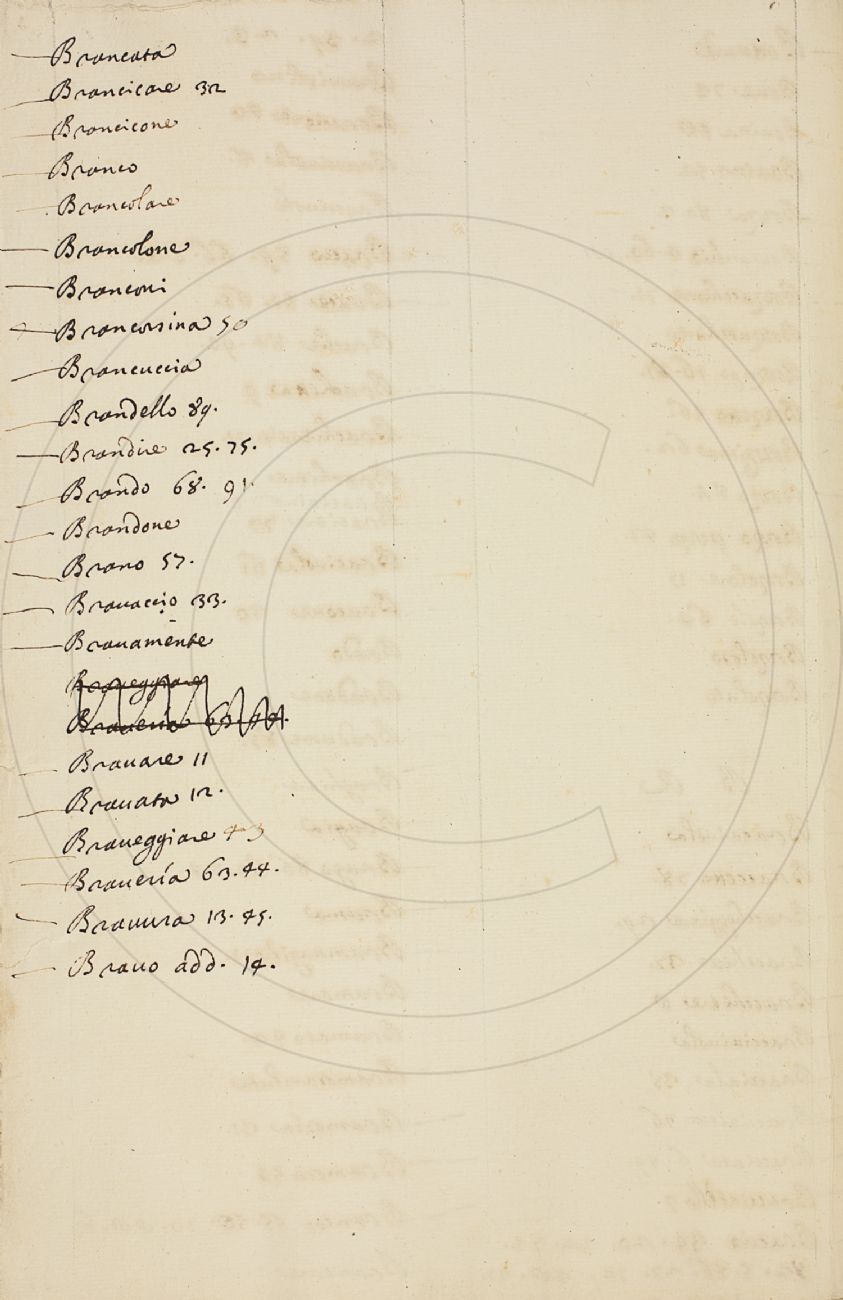 Brancata
Brancicare 32
Brancicone
Branco
Brancolare
Brancolone
Branconi
Brancorsina 50
Brancuccia
Brandello 89.
Brandire 25. 75.
Brando 68. 91.
Brandone
Brano 57.
Brauaccio 33.
Brauamente
Braueggiare
Braueria 63. 44.
Brauare 11
Brauata 12.
Braueggiare 43
Brauería 63. 44.
Brauura 13. 45.
Brauo add. 14.